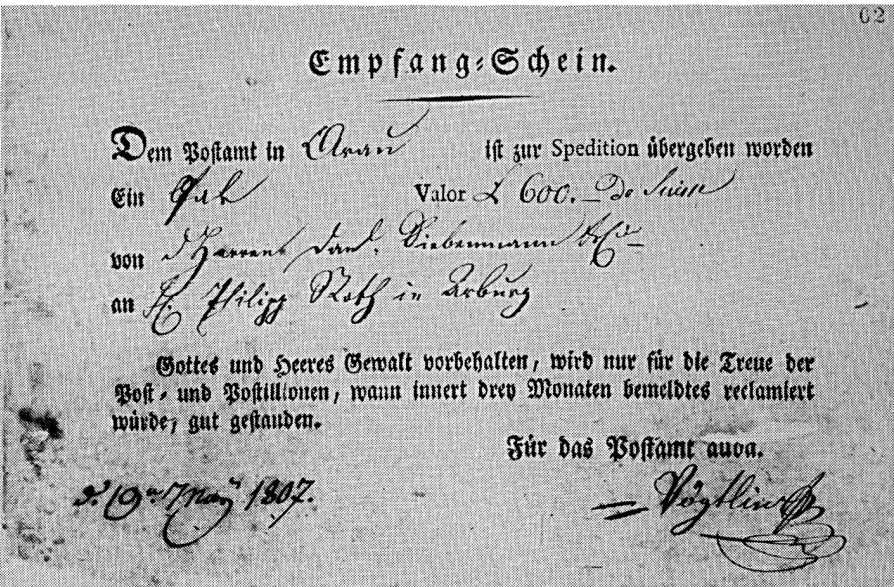 62
Empfang-Schein.
Dem Postamt in Arau ist zur Spedition übergeben worden
Ein Pak Valor L 600.— De Suisse
von d Herren Danl. Siebenmann
an H. Philipp Roth in Arburg
Gottes und Heeres Gewalt vorbehalten, wird nur für die Treue der
Post- und Postillionen, wann innert drey Monaten bemeldtes reclamiert
würde, gut gestanden.
Für das Postamt allda.
d. 19 May 1807.
Vögtlin